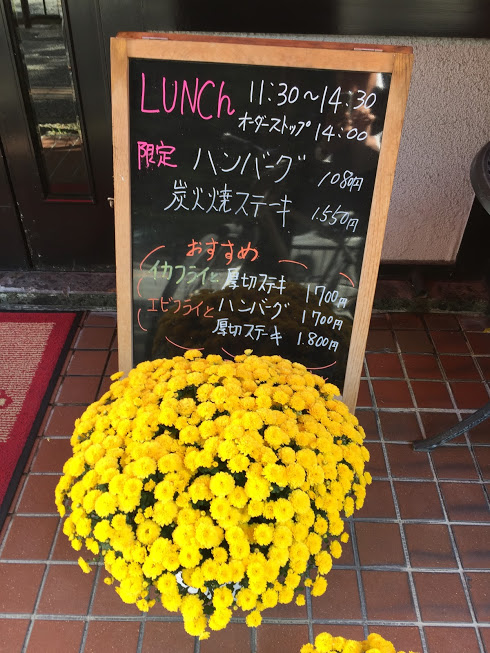 LUNCh 11:30～14:30
オーダーストップ 14:00
限定 ハンバーグ 1080円
炭火焼ステーキ 1.550円
おすすめ
イカフライと厚切ステキ 1700円
エビフライとハンバーグ 1700円
厚切ステキ 1.800円